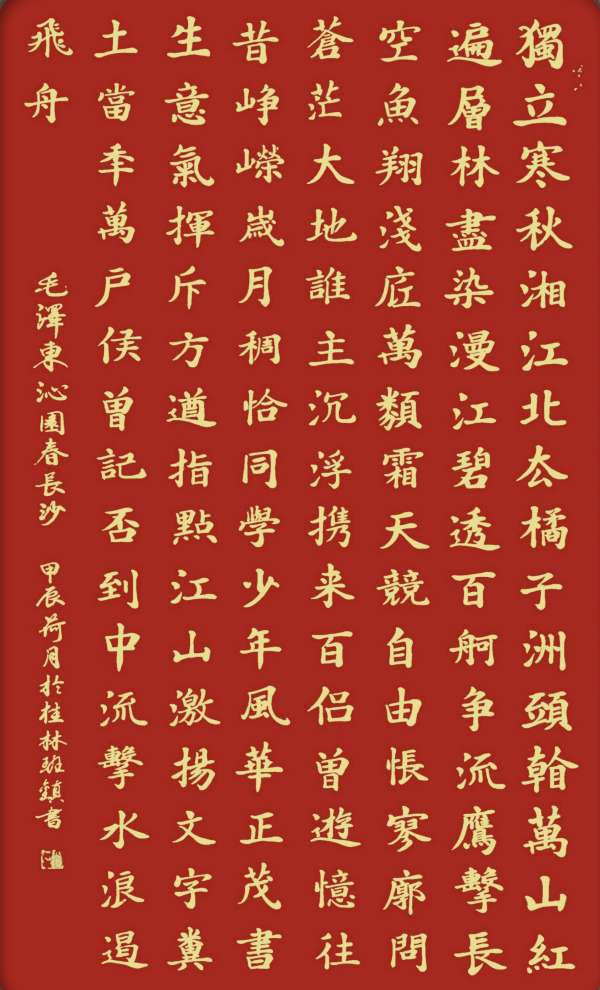 獨立寒秋湘江北厺橘子洲頭看萬山紅
遍層林盡染漫江碧透百舸争流鷹擊長
空魚翔淺底萬類霜天競自由悵寥廓問
蒼茫大地誰主沉浮携来百侶曾遊憶往
昔崢嶸歲月稠恰同學少年風華正茂書
生意氣揮斥方遒指點江山激揚文字糞
土當年萬户侯曾記否到中流擊水浪遏
飛舟
毛澤東沁園春長沙 甲辰荷月於桂林班鎮書